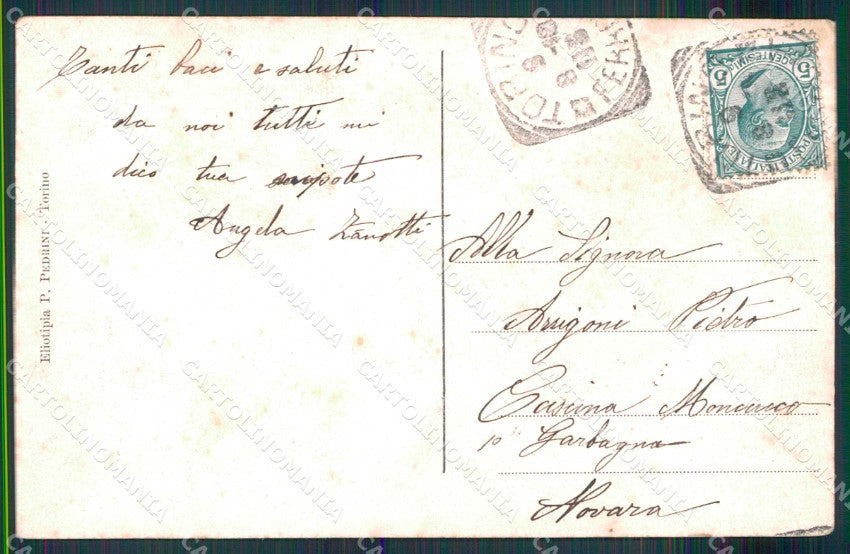 Tanti baci e saluti
da noi tutti mi
dico tua nipote
Angela Zanotti
Eliotipia P. PEDRINI - Torino
TORINO
FERR
5 CENTESIMI 5
POSTE ITALIANE
Alla Signora
Arrigoni Pietro
Cascina Moncucco
Garbagna
Novara
CARTOLINOMANIA